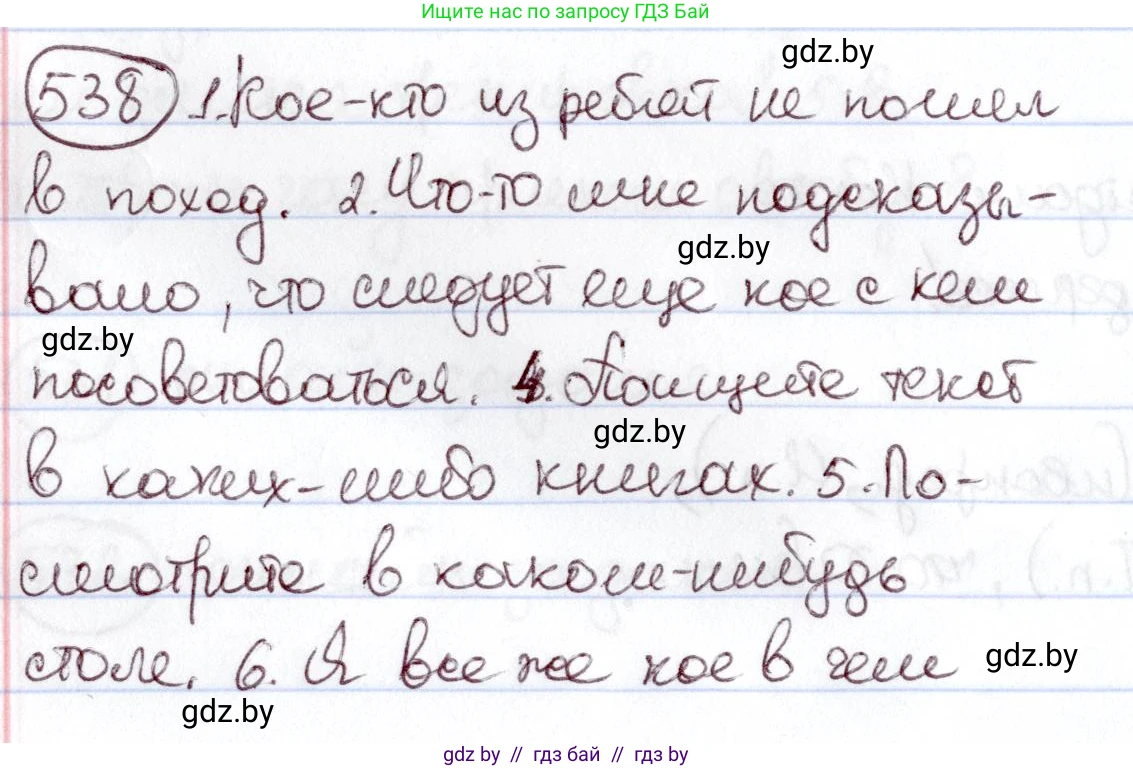 Ищите нас по запросу ГДЗ Бай
gdz.by
538 1. Кое-кто из ребят не пошел
в поход. 2. Что-то мне подсказы-
gdz.by
вало, что следует еще кое с кем
gdz.by
посоветоваться. 4. Поищите текст
gdz.by
в каких-либо книгах. 5. По-
смотрите в каком-нибудь
столе. 6. Я все же кое в чем
gdz.by
gdz.by
gdz.by // гдз бай // гдз by